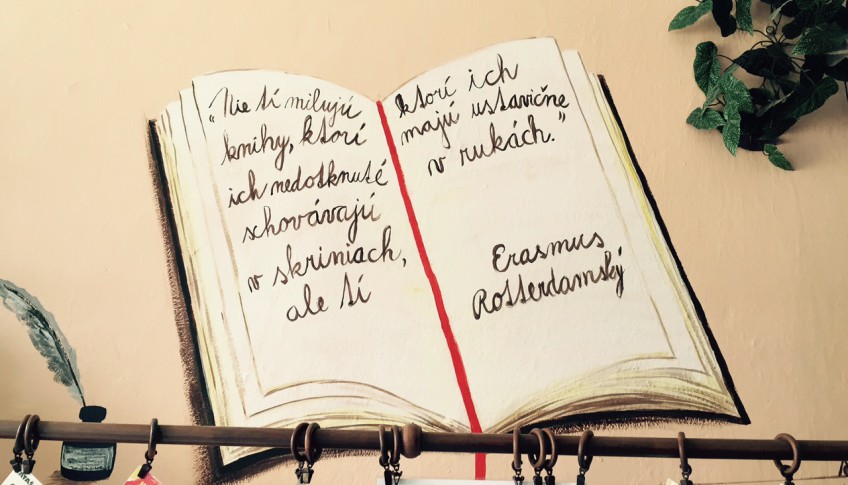 "Nie tí milujú
knihy, ktorí
ich nedotknuté
schovávajú
v skriniach,
ale tí
ktorí ich
majú ustavične
v rukách."
Erasmus
Rotterdamský